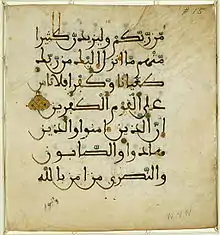 # 15
من ربكم وليزيدن كثيرا
منهم ما انزل اليك من ربك
طغينا وكفرا فلا تاس
على القوم الكفرين
ان الذين ءامنوا والذين
هادوا والصبون
والنصرى من ءامن بالله